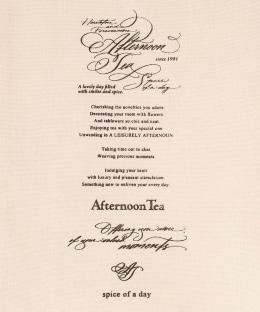 and
Afternoon
Tea
since 1981
Spice
of a day
A lovely day filled
with smiles and spice.
Cherishing the novelties you adore.
Decorating your room with flowers
And tableware so chic and neat.
Enjoying tea with your special one
Unwinding in A LEISURELY AFTERNOON
Taking time out to chat
Weaving precious moments.
Indulging your heart
with luxury and pleasant stimulation.
Something new to enliven your every day.
Afternoon Tea
Offering you more
of your valued moments
spice of a day